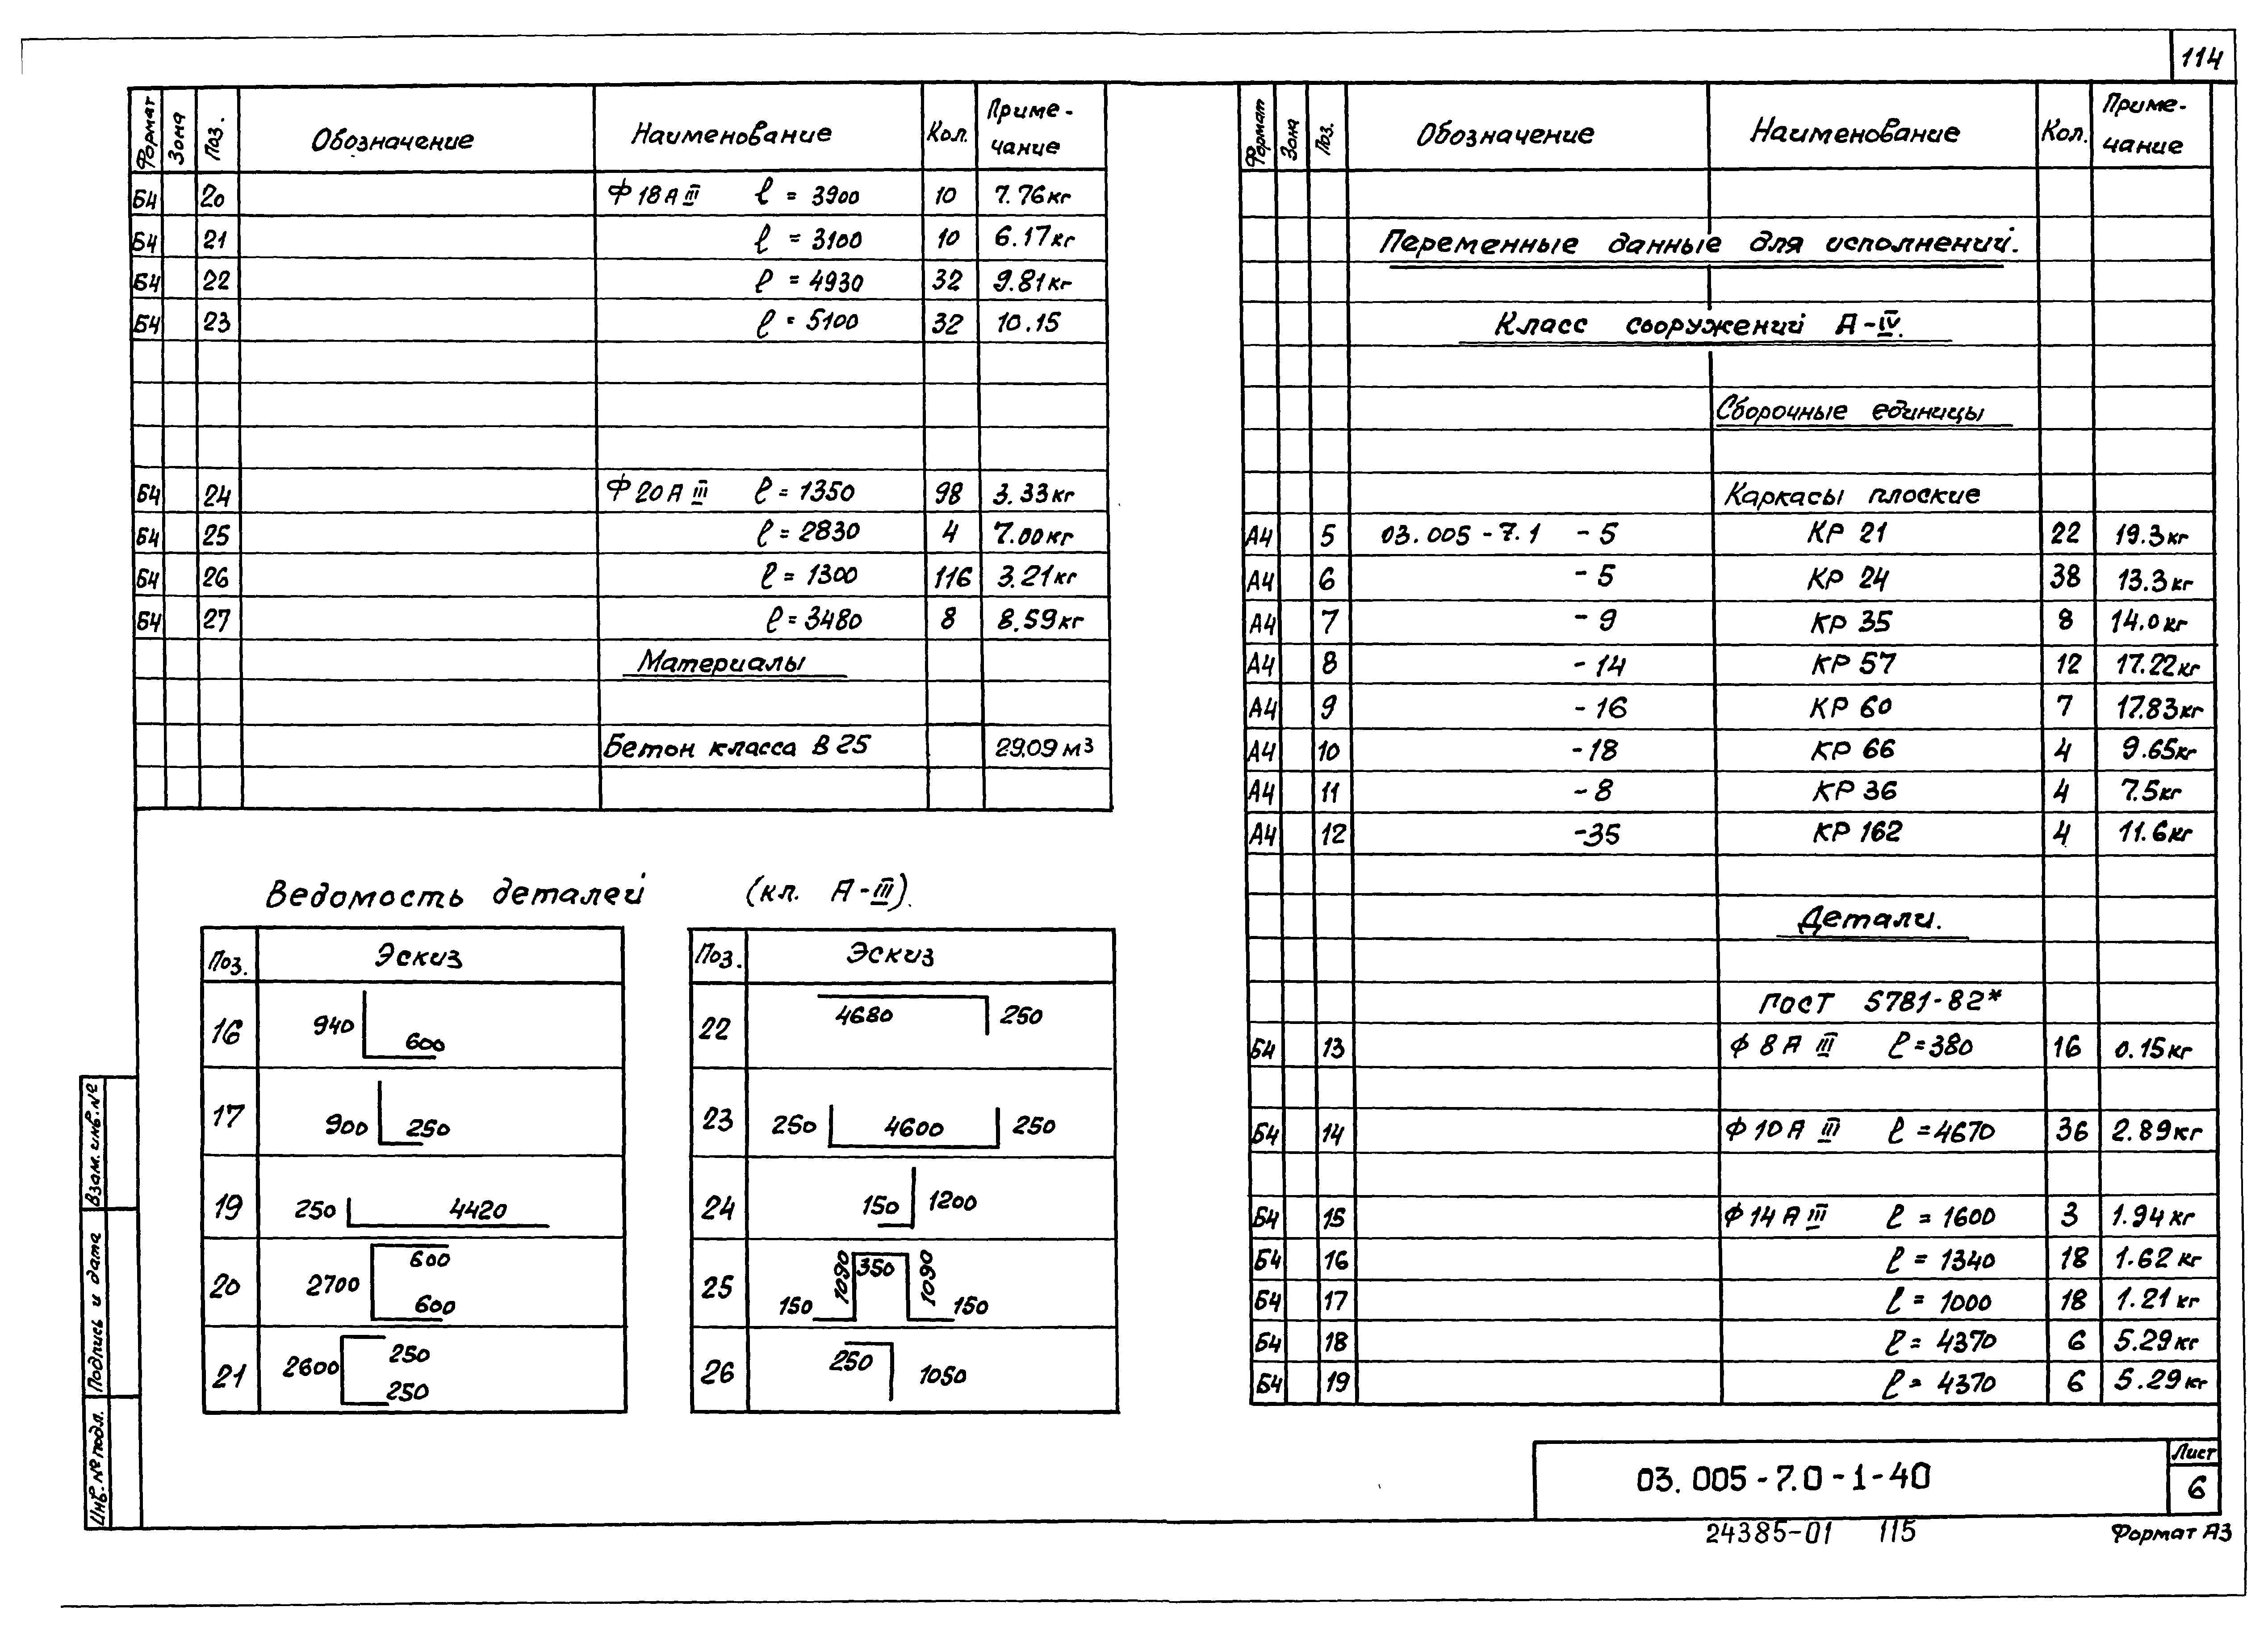 114
Формат Зона Поз. Обозначение Наименование Кол. Приме-чание
Б4 20 Ф18АIII ℓ = 3900 10 7.76кг
Б4 21 ℓ = 3100 10 6.17кг
Б4 22 ℓ = 4930 32 9.81кг
Б4 23 ℓ = 5100 32 10.15
Б4 24 Ф20АIII ℓ = 1350 98 3.33кг
Б4 25 ℓ = 2830 4 7.00кг
Б4 26 ℓ = 1300 116 3.21кг
Б4 27 ℓ = 3480 8 8.59кг
Материалы
Бетон класса В25 29.09 м³
Ведомость деталей (кл. А-III).
Поз. Эскиз
16 940 600
17 900 250
19 250 4420
20 2700 600 600
21 2600 250 250
Поз. Эскиз
22 4680 250
23 250 4600 250
24 150 1200
25 150 1090 350 1090 150
26 250 1050
Формат Зона Поз. Обозначение Наименование Кол. Приме-чание
Переменные данные для исполнений.
Класс сооружений А-IV.
Сборочные единицы
Каркасы плоские
А4 5 03.005-7.1 -5 КР 21 22 19.3кг
А4 6 -5 КР 24 38 13.3кг
А4 7 -9 КР 35 8 14.0кг
А4 8 -14 КР 57 12 17.22кг
А4 9 -16 КР 60 7 17.83кг
А4 10 -18 КР 66 4 9.65кг
А4 11 -8 КР 36 4 7.5кг
А4 12 -35 КР 162 4 11.6кг
Детали.
ГОСТ 5781-82*
Б4 13 Ф8АIII ℓ=380 16 0.15кг
Б4 14 Ф10АIII ℓ=4670 36 2.89кг
Б4 15 Ф14АIII ℓ = 1600 3 1.94кг
Б4 16 ℓ = 1340 18 1.62кг
Б4 17 ℓ = 1000 18 1.21кг
Б4 18 ℓ = 4370 6 5.29кг
Б4 19 ℓ = 4370 6 5.29кг
Инв. № подл. Подпись и дата Взам. инв. №
03.005-7.0-1-40
Лист
6
24385-01 115 Формат А3